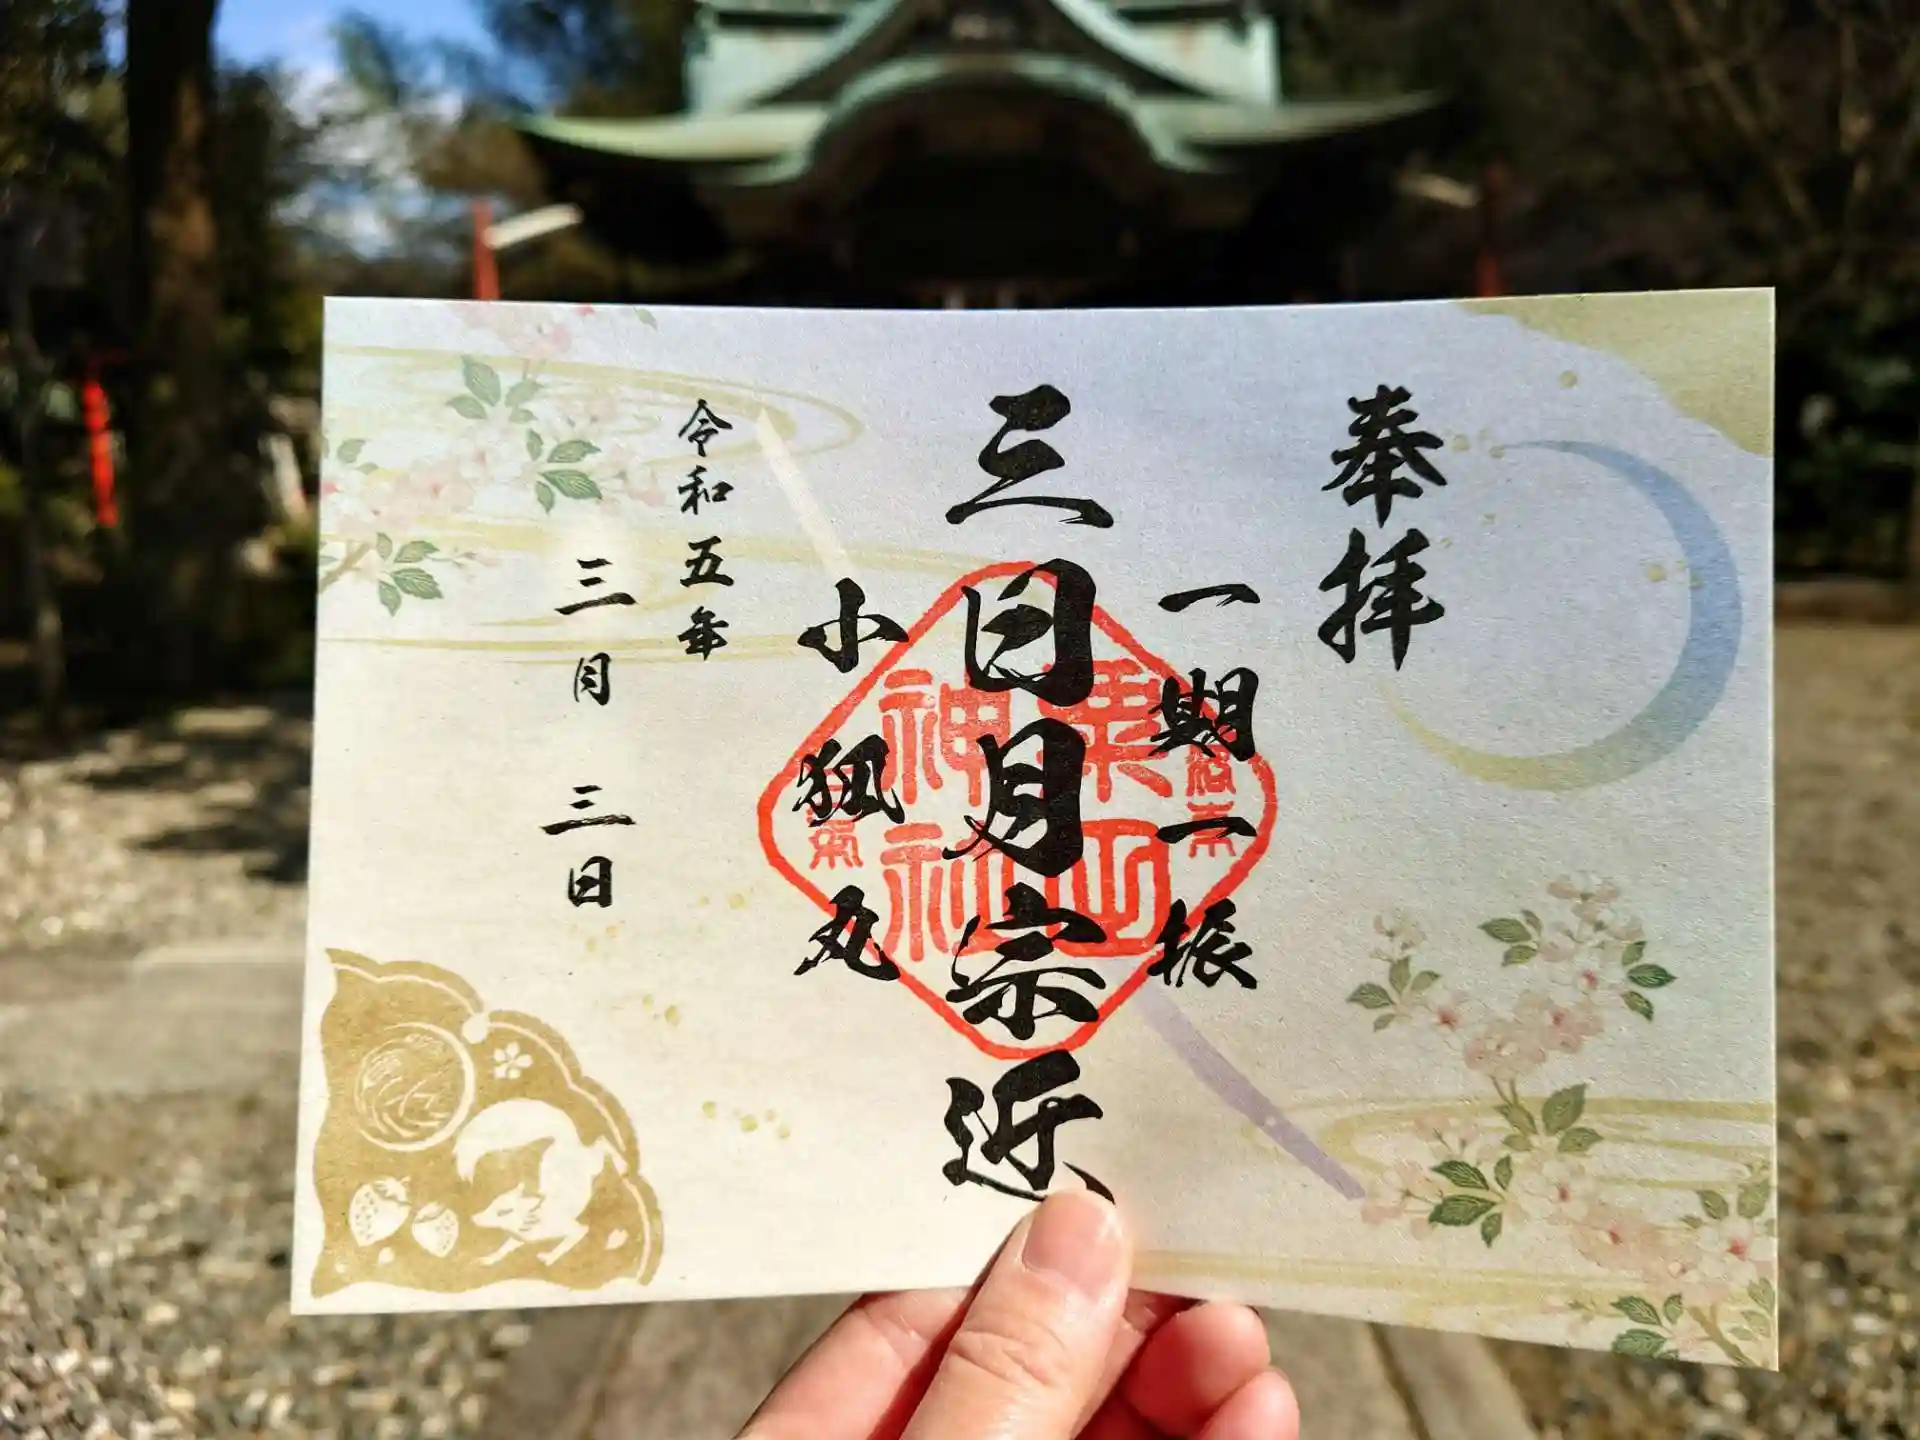 奉拝
一期一振
三日月宗近
小狐丸
令和五年
三月三日
粟田
神社